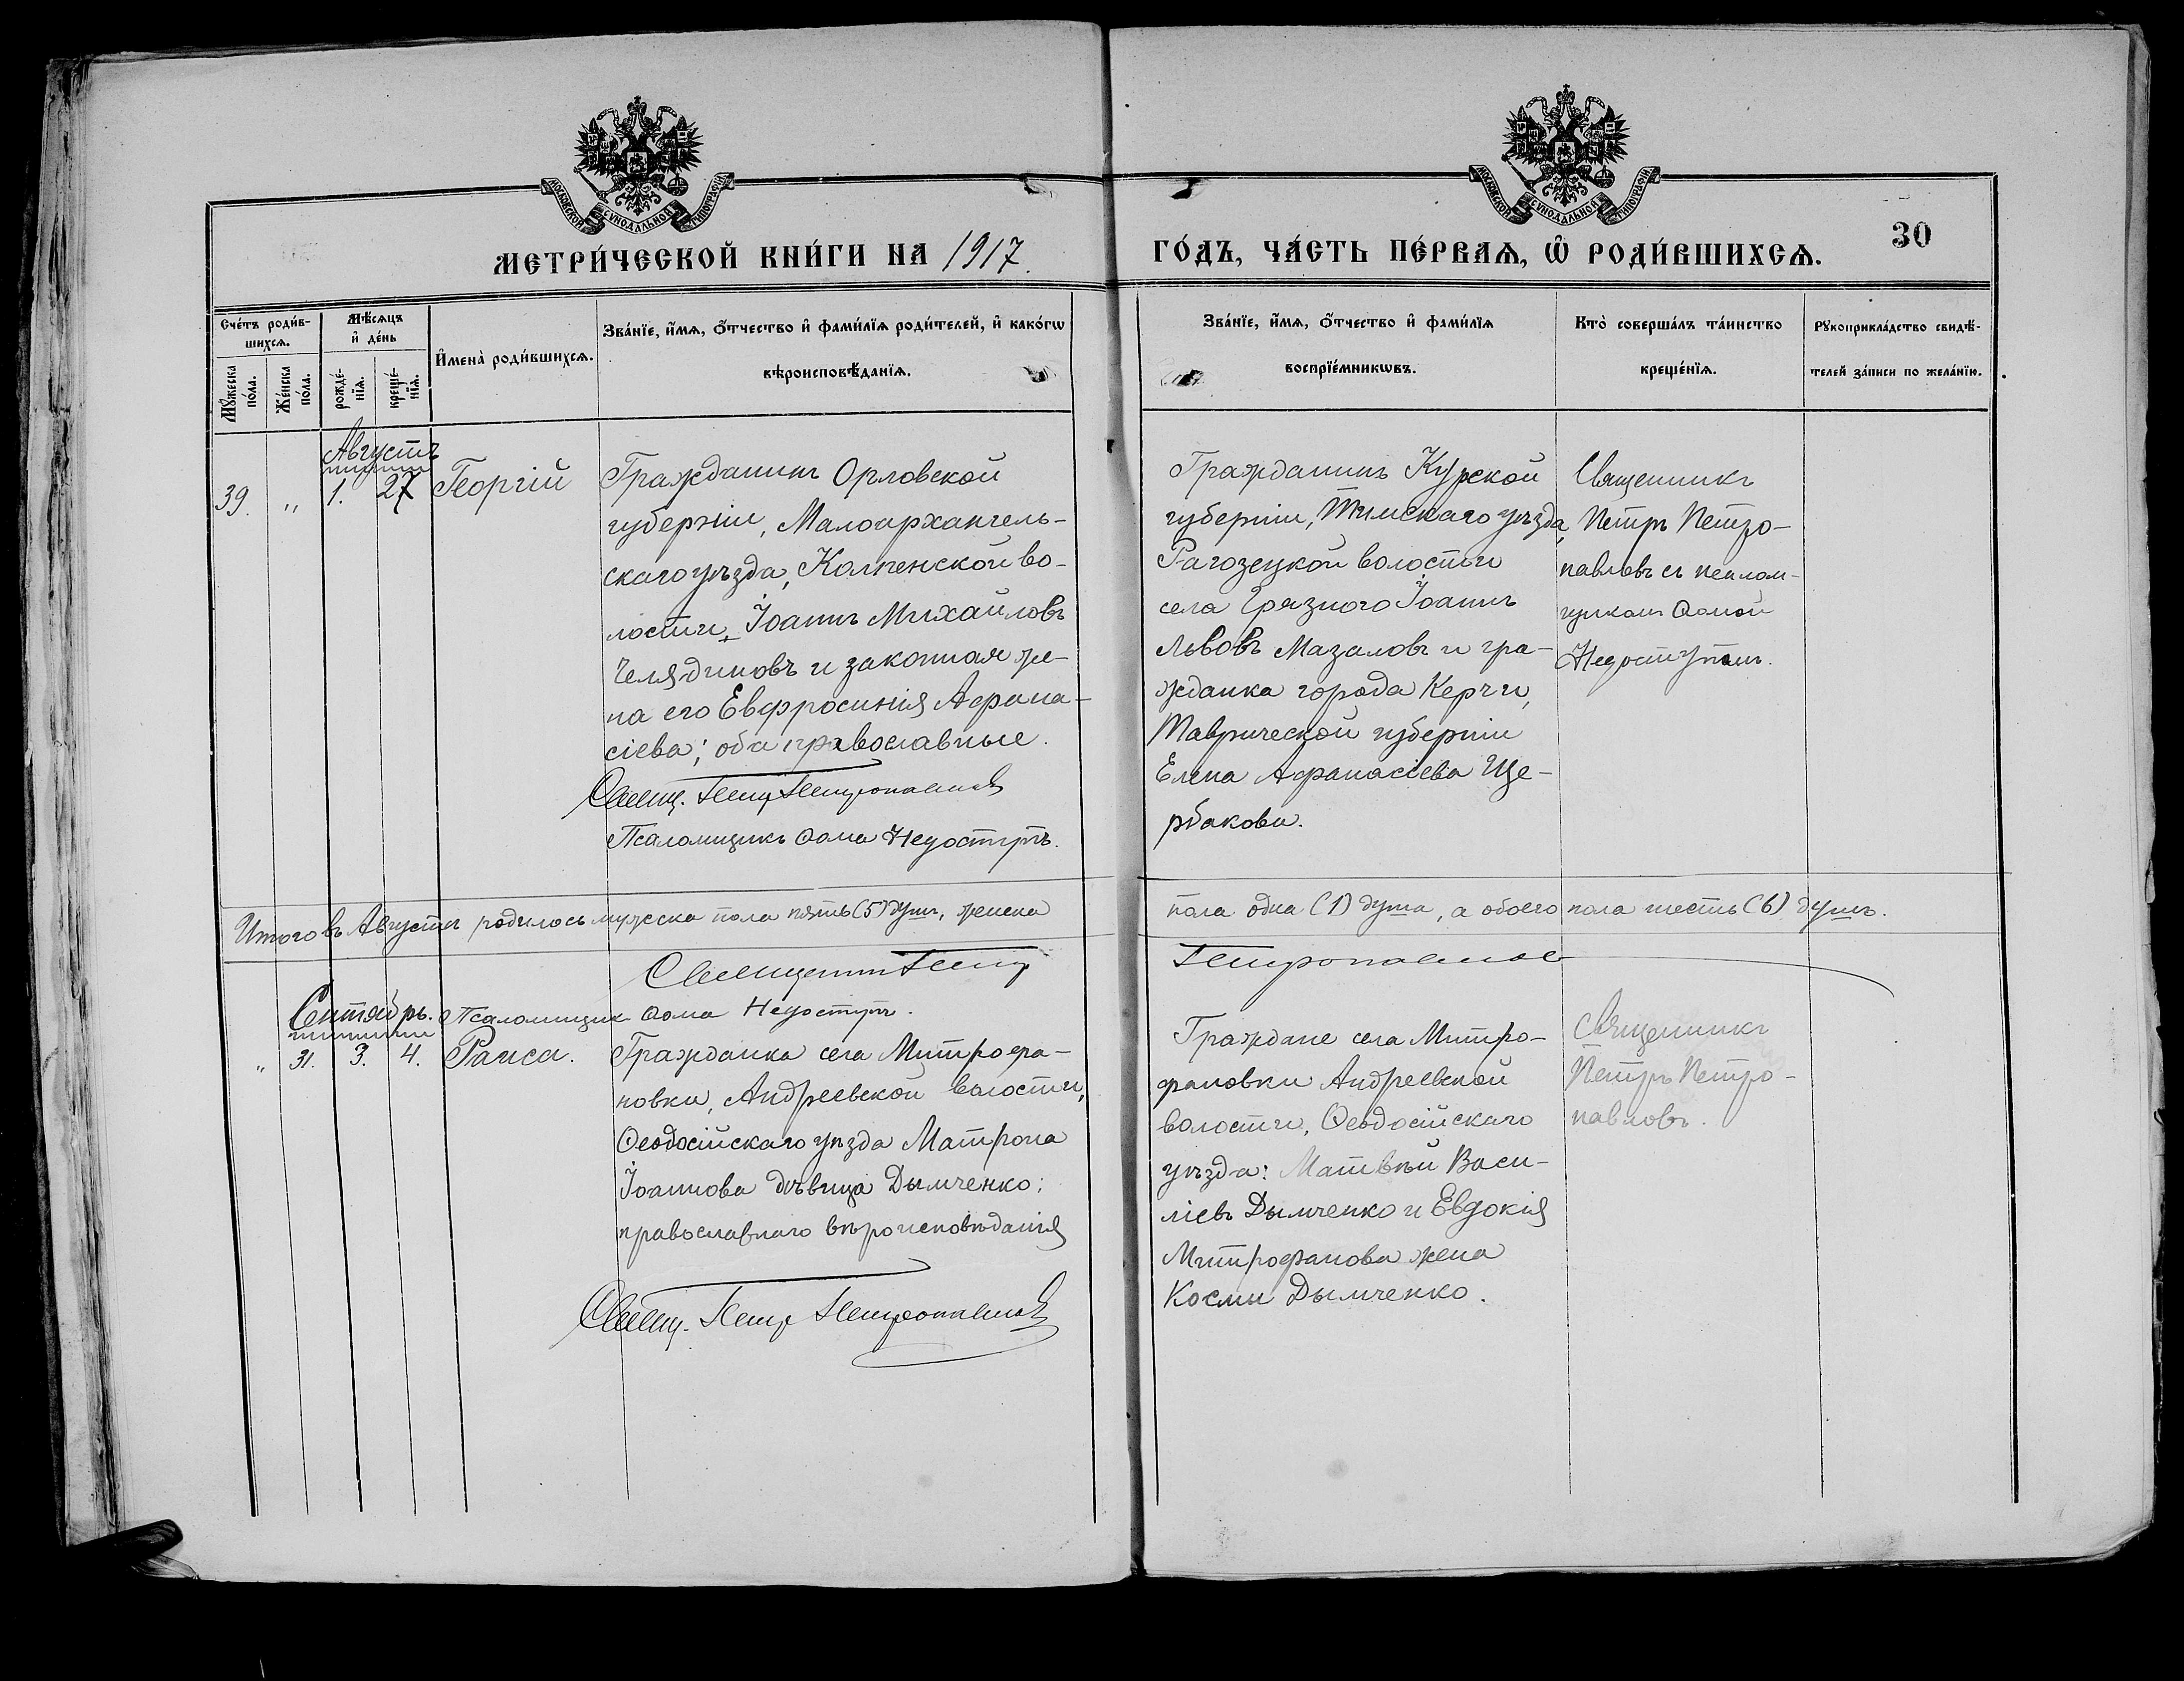 МОСКОВСКОЙ СѴНОДАЛЬНОЙ ТИПОГРАФІИ
МОСКОВСКОЙ СѴНОДАЛЬНОЙ ТИПОГРАФІИ
МЕТРИ́ЧЕСКОЙ КНИ́ГИ НА 1917.
ГО́ДЪ, ЧА́СТЬ ПЕ́РВАѦ, Ѽ РОДИ́ВШИХСѦ.
30
Сче́тъ роди́в-
шихсѧ.
Мꙋ́жеска по́ла.
Же́нска по́ла.
Мѣ́сѧцъ
и҆ де́нь
рожде́-
нїѧ.
креще́-
нїѧ.
И҆мена̀ роди́вшихсѧ.
Зва́нїе, и҆́мѧ, ѻ҆́тчество и҆ фами́лїѧ роди́телей, и҆ како́гѡ
вѣроисповѣ́данїѧ.
Зва́нїе, и҆́мѧ, ѻ҆́тчество и҆ фами́лїѧ
воспрїе́мникѡвъ.
Кто̀ соверша́лъ та́инство
креще́нїѧ.
Рꙋкоприкла́дство свидѣ́-
телей за́писи по жела́нїю.
Августъ
39. „ 1. 27 Георгій
Гражданинъ Орловской
губерніи, Малоархангель-
скаго уѣзда, Колпенской во-
лости, Іоаннъ Михайловъ
Челядиновъ и законная же-
на его Евфросинія Афана-
сіева; оба православные.
Свящ. Петр Петропавлов
Псаломщикъ Ѳома Недоступъ.
Гражданинъ Курской
губерніи, Тимскаго уѣзда,
Рагозецкой волости
села Грязного Іоаннъ
Львовъ Мазаловъ и гра-
жданка города Керчи,
Таврической губерніи
Елена Афанасіева Ще-
рбакова.
Священникъ
Петръ Петро-
павловъ съ псалом-
щикомъ Ѳомой
Недоступомъ.
Итого въ Августѣ родилось мужеска пола пять (5) душъ, женска
пола одна (1) душа, а обоего пола шесть (6) душъ.
Священник Петр
Петропавлов
Сентябрь. Псаломщик Ѳома Недоступъ.
„ 31. 3. 4. Раиса.
Гражданка села Митрофа-
новки, Андреевской волости,
Ѳеодосійскаго уѣзда Матрона
Іоаннова дѣвица Дымченко;
православнаго вѣроисповѣданія
Свящ. Петр Петропавлов
Граждане села Митро-
фановки Андреевской
волости, Ѳеодосійскаго
уѣзда: Матвѣй Васи-
ліевъ Дымченко и Евдокія
Митрофанова жена
Космы Дымченко.
Священникъ
Петръ Петро-
павловъ.